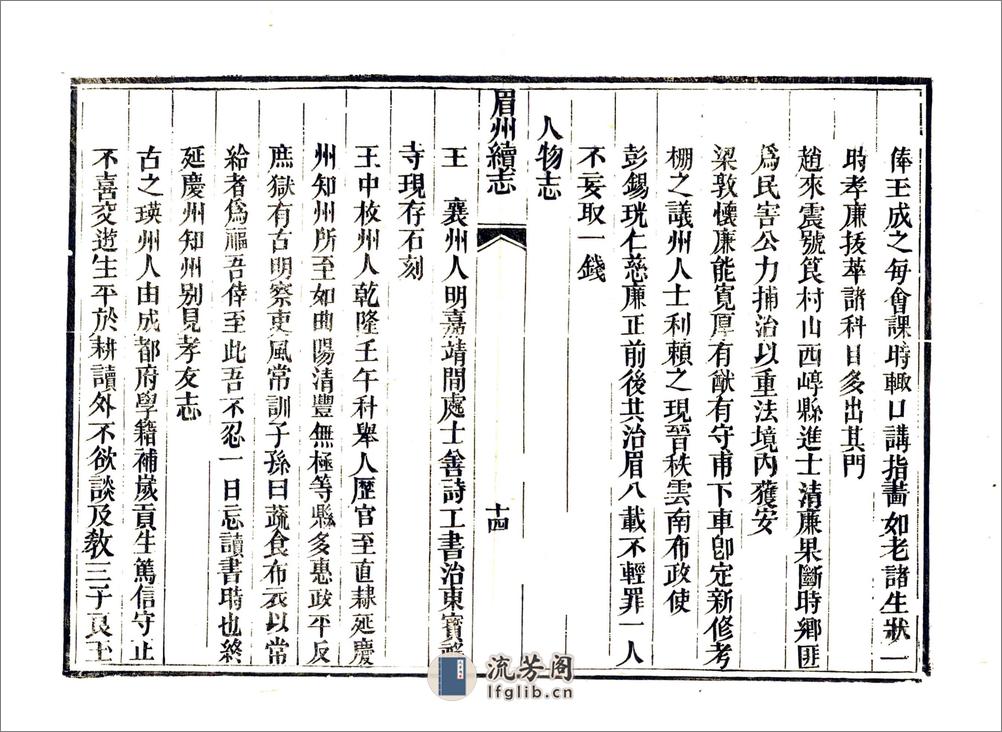 俸王成之每會課時輙口講指畵如老諸生狀一
時孝廉抜萃諸科目多出其門
趙來震號筤村山西崞縣進士清廉果斷時鄉匪
爲民害公力捕治以重法境内獲安
梁敦懷廉能寛厚有猷有守甫下車卽定新修考
棚之議州人士利賴之現晉秩雲南布政使
彭錫珖仁慈廉正前後共治眉八載不輕罪一人
不妄取一錢
人物志
眉州續志
十四
王 襄州人明嘉靖間處士善詩工書治東寳
寺現存石刻
王中枚州人乾隆壬午科舉人歴官至直隸延慶
州知州所至如曲陽清豐無極等縣多惠政平反
庶獄有古明察吏風常訓子孫曰蔬食布衣以常
給者爲福吾倖至此吾不忍一日忘讀書時也終
延慶州知州别見孝友志
古之瑛州人由成都府學籍補嵗貢生篤信守止
不喜交遊生平於耕讀外不欲談及教三子良玉
流芳阁
lfglib.cn